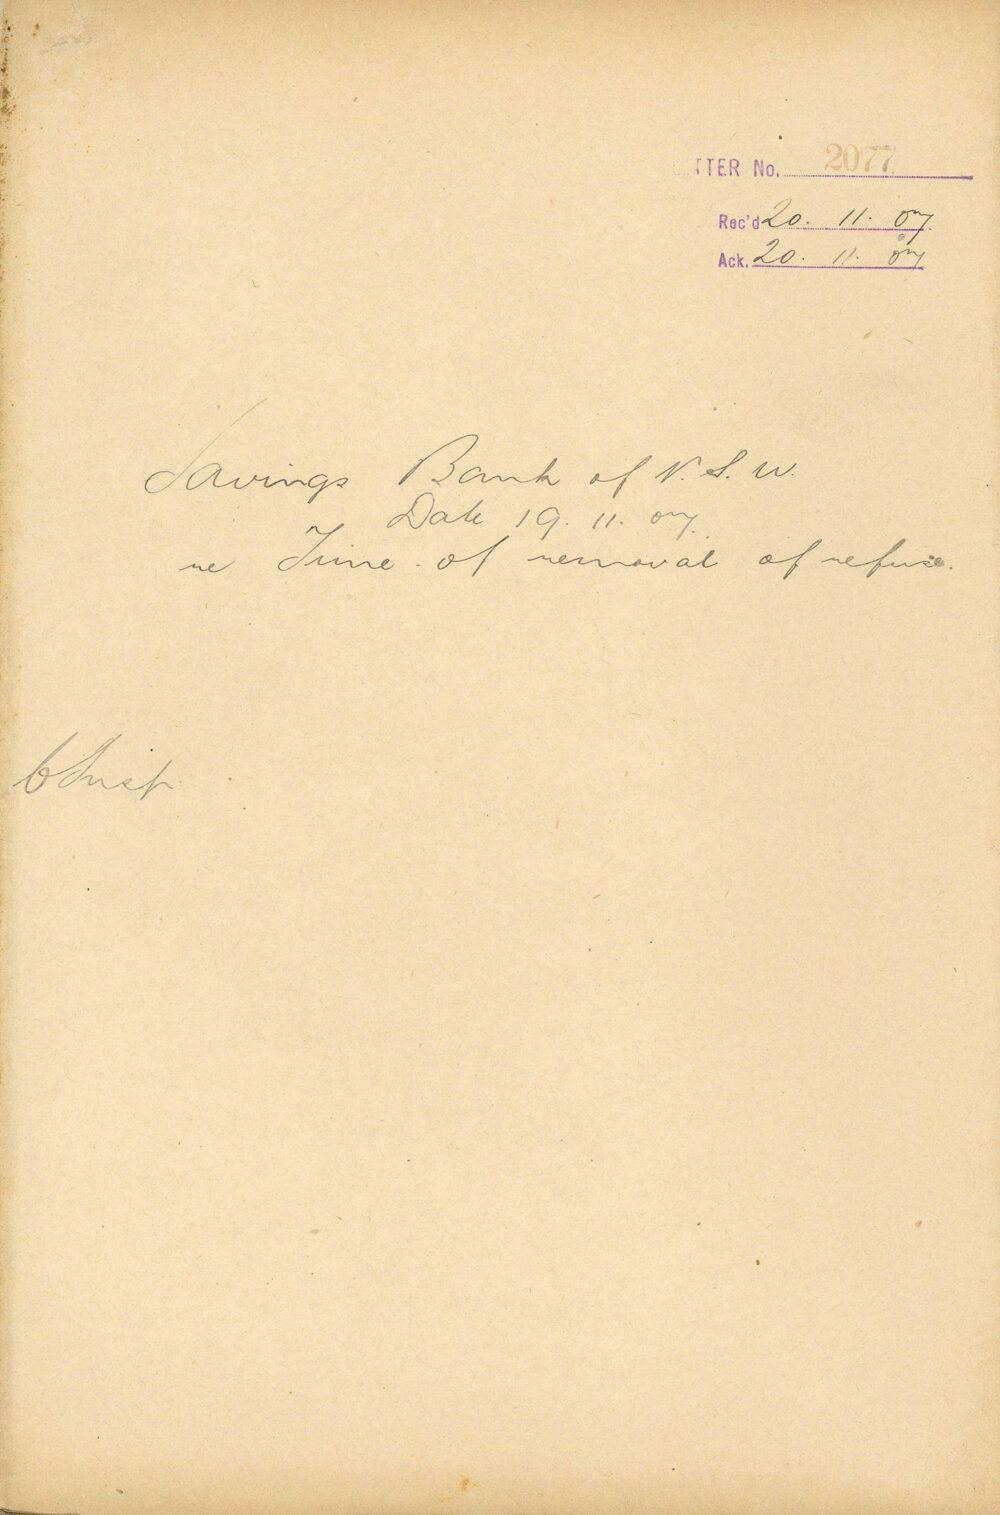 TTER No. 2077
Rec'd 20. 11. 07
Ack. 20. 11. 07
Savings Bank of N.S.W.
Date 19. 11. 07
re Time of removal of refuse.
C Insp